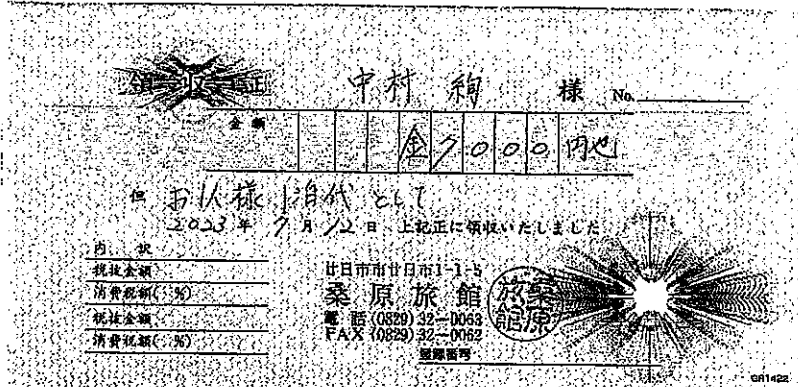 領収証
中村 絢 様 No.
金額 金7000円也
但 お1人様1泊代として
2023年7月12日 上記正に領収いたしました
内訳
税抜金額
消費税額( %)
税抜金額
消費税額( %)
廿日市市廿日市1-1-5
桑原旅館
電話(0829)32-0063
FAX(0829)32-0062
桑原旅館
登録番号
GR1422